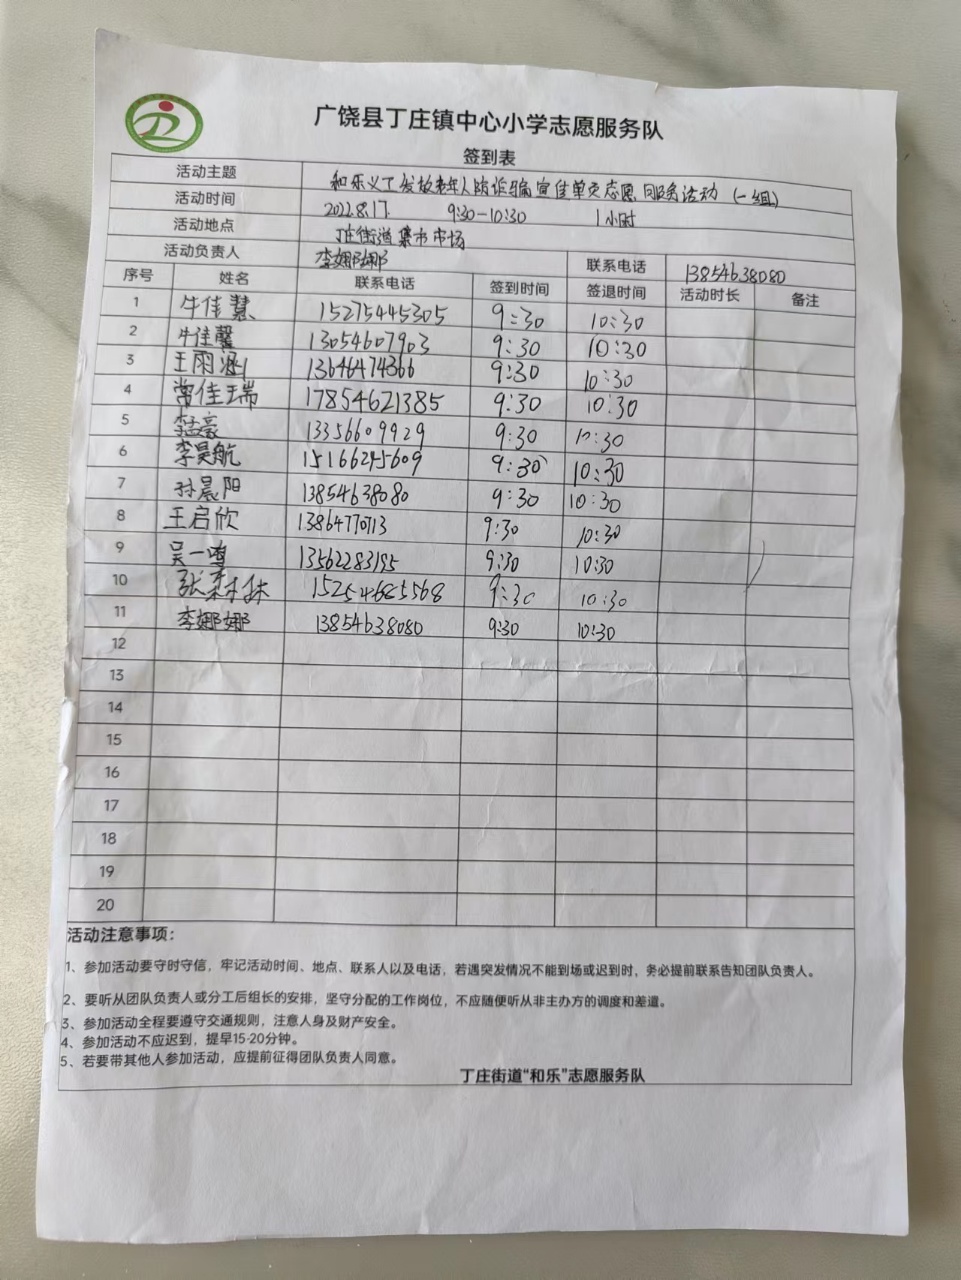 广饶县丁庄镇中心小学志愿服务队
签到表
活动主题 和乐义工发放老年人防诈骗宣传单页志愿服务活动（一组）
活动时间 2022.8.17. 9:30-10:30 1小时
活动地点 丁庄街道集市市场
活动负责人 李娜娜 联系电话 13854638080
序号 姓名 联系电话 签到时间 签退时间 活动时长 备注
1 牛佳慧 15275445305 9:30 10:30
2 牛佳馨 13054607903 9:30 10:30
3 王雨涵 13646474366 9:30 10:30
4 常佳瑞 17854621385 9:30 10:30
5 13356609929 9:30 10:30
6 李昊航 15166245609 9:30 10:30
7 孙晨阳 13854638080 9:30 10:30
8 王启欣 13864770713 9:30 10:30
9 吴一鸣 13562283195 9:30 10:30
10 张森林 15254685568 9:30 10:30
11 李娜娜 13854638080 9:30 10:30
12
13
14
15
16
17
18
19
20
活动注意事项：
1、参加活动要守时守信，牢记活动时间、地点、联系人以及电话，若遇突发情况不能到场或迟到时，务必提前联系告知团队负责人。
2、要听从团队负责人或分工后组长的安排，坚守分配的工作岗位，不应随便听从非主办方的调度和差遣。
3、参加活动全程要遵守交通规则，注意人身及财产安全。
4、参加活动不应迟到，提早15-20分钟。
5、若要带其他人参加活动，应提前征得团队负责人同意。
丁庄街道“和乐”志愿服务队